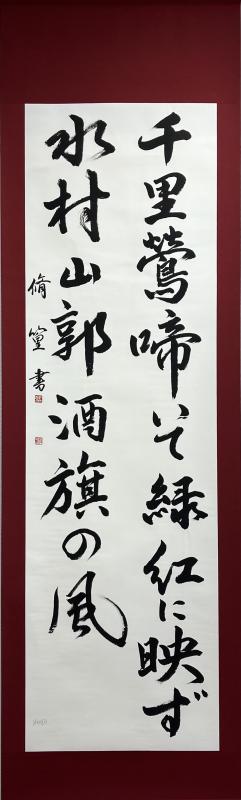 千里鶯啼いて緑紅に映ず
水村山郭酒旗の風
脩篁書